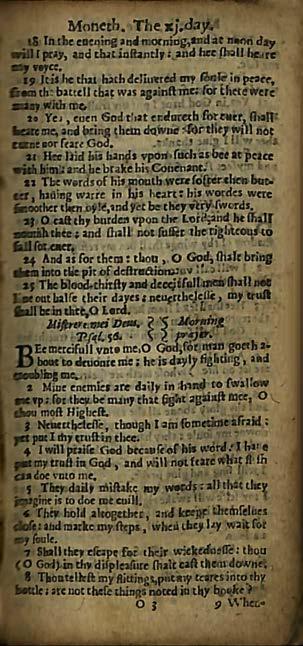 Moneth. The xj. day.
18 In the euening and morning, and at noon day
will I pray, and that instantly: and hee shall heare
my voyce.
19 It is he that hath deliuered my soule in peace,
from the battell that was against me: for there were
many with me.
20 Yea, euen God that endureth for euer, shall
heare me, and bring them downe: for they will not
turne nor feare God.
21 Hee laid his hands vpon such as bee at peace
with him: and he brake his Couenant.
22 The words of his mouth were softer then but-
ter, hauing warre in his heart: his wordes were
smoother then oyle, and yet be they very swords.
23 O cast thy burden vpon the Lord, and he shall
nourish thee: and shall not suffer the righteous to
fall for euer.
24 And as for them: thou, O God, shalt bring
them into the pit of destruction.
25 The blood-thirsty and deceitfull men shall not
liue out halfe their dayes: neuerthelesse, my trust
shall be in thee, O Lord.
Miserere mei Deus. Morning
Psal. 56. prayer.
BEe mercifull vnto me, O God, for man goeth a-
bout to deuoure me: he is dayly fighting, and
troubling me.
2 Mine enemies are daily in hand to swallow
me vp: for they be many that fight against mee, O
thou most Highest.
3 Neuerthelesse, though I am sometime afraid:
yet put I my trust in thee.
4 I will praise God because of his word: I haue
put my trust in God, and will not feare what flesh
can doe vnto me.
5 They daily mistake my words: all that they
imagine is to doe me euill.
6 They hold altogether, and keepe themselues
close: and marke my steps, when they lay wait for
my soule.
7 Shall they escape for their wickednesse: thou
(O God) in thy displeasure shalt cast them downe.
8 Thou tellest my flittings, put my teares into thy
bottle: are not these things noted in thy booke?
O 3 9 When-